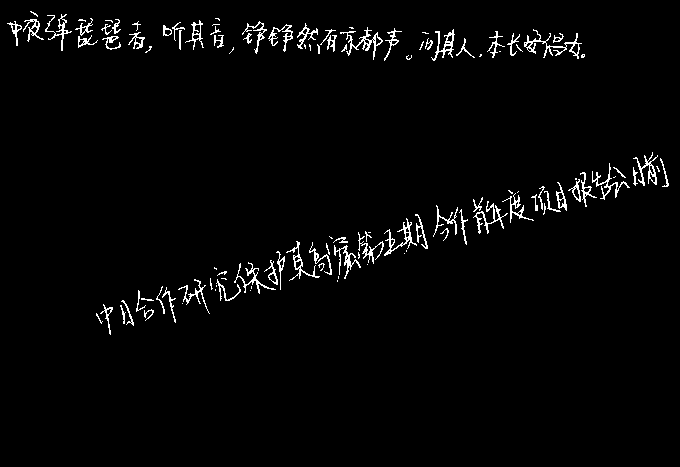 中夜弹琵琶者，听其音，铮铮然有京都声。问其人，本长安倡女。
中日合作研究保护莫高窟第五期合作首年度项目报告会日前